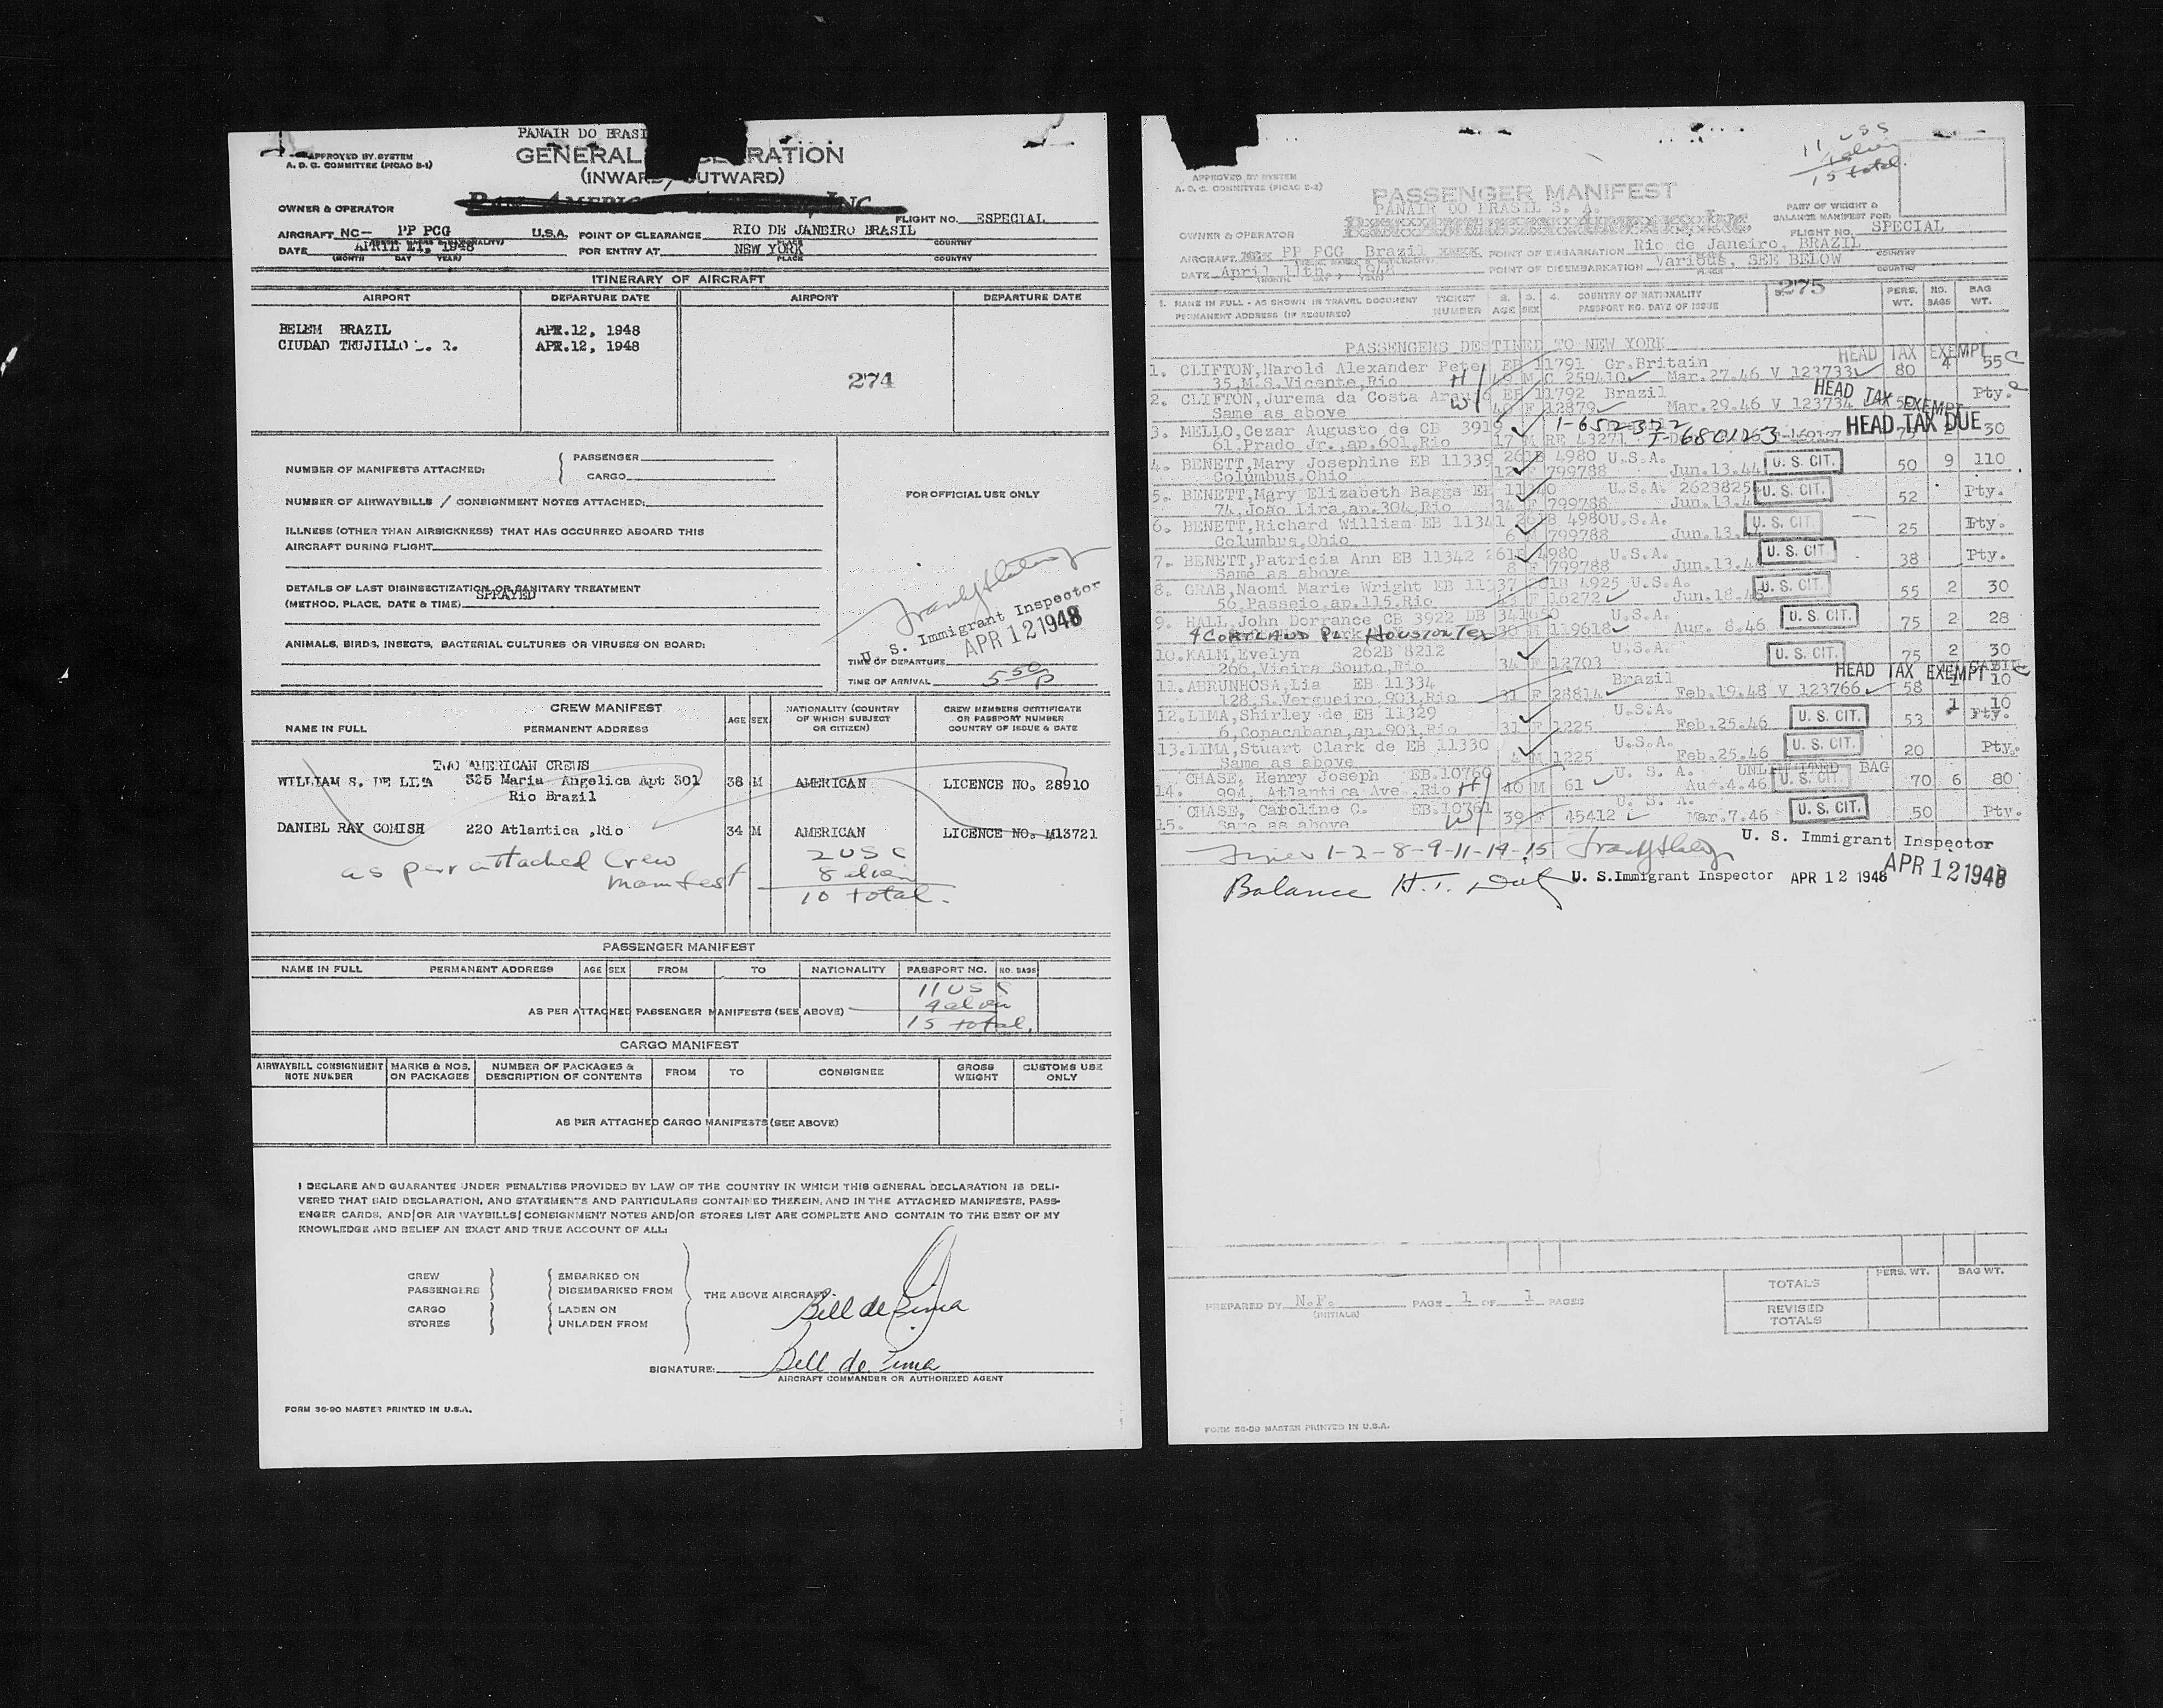 PANAIR DO BRASI
APPROVED BY SYSTEM
A. D. C. COMMITTEE (PICAO S-1)
GENERAL RATION
(INWARD/OUTWARD)
OWNER & OPERATOR
FLIGHT NO. ESPECIAL
AIRCRAFT NC- PP PCG U.S.A. POINT OF CLEARANCE RIO DE JANEIRO BRASIL
DATE APRIL 1948 FOR ENTRY AT NEW YORK
(MONTH DAY YEAR) PLACE COUNTRY
ITINERARY OF AIRCRAFT
AIRPORT DEPARTURE DATE AIRPORT DEPARTURE DATE
BELEM BRAZIL APR.12, 1948
CIUDAD TRUJILLO D. R. APR.12, 1948
274
NUMBER OF MANIFESTS ATTACHED: PASSENGER
CARGO
NUMBER OF AIRWAYBILLS / CONSIGNMENT NOTES ATTACHED:
FOR OFFICIAL USE ONLY
ILLNESS (OTHER THAN AIRSICKNESS) THAT HAS OCCURRED ABOARD THIS
AIRCRAFT DURING FLIGHT
DETAILS OF LAST DISINSECTIZATION OR SANITARY TREATMENT
SPRAYED
(METHOD, PLACE, DATE & TIME)
ANIMALS, BIRDS, INSECTS, BACTERIAL CULTURES OR VIRUSES ON BOARD:
U. S. Immigrant Inspector
APR 12 1948
TIME OF DEPARTURE
TIME OF ARRIVAL 5 50 P
CREW MANIFEST
NAME IN FULL PERMANENT ADDRESS AGE SEX NATIONALITY (COUNTRY OF WHICH SUBJECT OR CITIZEN) CREW MEMBERS CERTIFICATE OR PASSPORT NUMBER COUNTRY OF ISSUE & DATE
TWO AMERICAN CREWS
WILLIAM S. DE LIMA 325 Maria Angelica Apt 301 38 M AMERICAN LICENCE NO. 28910
Rio Brazil
DANIEL RAY COMISH 220 Atlantica ,Rio 34 M AMERICAN LICENCE NO. M13721
as per attached Crew manifest
2 USC
8 alien
10 total.
PASSENGER MANIFEST
NAME IN FULL PERMANENT ADDRESS AGE SEX FROM TO NATIONALITY PASSPORT NO. NO. BAGS
11 USC
4 alien
AS PER ATTACHED PASSENGER MANIFESTS (SEE ABOVE)
15 total.
CARGO MANIFEST
AIRWAYBILL CONSIGNMENT NOTE NUMBER MARKS & NOS. ON PACKAGES NUMBER OF PACKAGES & DESCRIPTION OF CONTENTS FROM TO CONSIGNEE GROSS WEIGHT CUSTOMS USE ONLY
AS PER ATTACHED CARGO MANIFESTS (SEE ABOVE)
I DECLARE AND GUARANTEE UNDER PENALTIES PROVIDED BY LAW OF THE COUNTRY IN WHICH THIS GENERAL DECLARATION IS DELI-
VERED THAT SAID DECLARATION, AND STATEMENTS AND PARTICULARS CONTAINED THEREIN, AND IN THE ATTACHED MANIFESTS, PASS-
ENGER CARDS, AND/OR AIR WAYBILLS/CONSIGNMENT NOTES AND/OR STORES LIST ARE COMPLETE AND CONTAIN TO THE BEST OF MY
KNOWLEDGE AND BELIEF AN EXACT AND TRUE ACCOUNT OF ALL:
CREW EMBARKED ON
PASSENGERS DISEMBARKED FROM THE ABOVE AIRCRAFT
CARGO LADEN ON
STORES UNLADEN FROM
Bill de Lima
SIGNATURE: Bill de Lima
AIRCRAFT COMMANDER OR AUTHORIZED AGENT
FORM 36-90 MASTER PRINTED IN U.S.A.
11 USC
4 alien
15 total.
APPROVED BY SYSTEM
A. D. C. COMMITTEE (PICAO S-2)
PASSENGER MANIFEST
PANAIR DO BRASIL S. A.
PART OF WEIGHT &
BALANCE MANIFEST FOR:
OWNER & OPERATOR FLIGHT NO. SPECIAL
AIRCRAFT PP PCG Brazil POINT OF EMBARKATION Rio de Janeiro, BRAZIL
DATE April 11th., 1948 POINT OF DISEMBARKATION Various, SEE BELOW
275
1. NAME IN FULL - AS SHOWN IN TRAVEL DOCUMENT TICKET NUMBER 2. AGE 3. SEX 4. COUNTRY OF NATIONALITY PERS. WT. NO. BAGS BAG WT.
PERMANENT ADDRESS (IF REQUIRED) PASSPORT NO. DATE OF ISSUE
PASSENGERS DESTINED TO NEW YORK
HEAD TAX EXEMPT
1. CLIFTON,Harold Alexander Pete EB 11791 Gr.Britain
35,M.S.Vicente,Rio H 49 M C 259410 Mar.27.46 V 123733 80 4 55
2. CLIFTON,Jurema da Costa Araujo EB 11792 Brazil HEAD TAX EXEMPT Pty.
Same as above W 40 F 12879 Mar.29.46 V 123734
3. MELLO,Cezar Augusto de CB 3919 1-652322 HEAD TAX DUE
61,Prado Jr.,ap.601,Rio 17 M RE 43271 T-6801253 75 2 30
4. BENETT,Mary Josephine EB 11339 261B 4980 U.S.A. U. S. CIT. 50 9 110
Columbus,Ohio 12 799788 Jun.13.44
5. BENETT,Mary Elizabeth Baggs EB 11340 U.S.A. 2623825 U. S. CIT. 52 Pty.
74,João Lira,ap.304,Rio 34 F 799788 Jun.13.44
6. BENETT,Richard William EB 11341 261B 4980U.S.A. U. S. CIT. 25 Pty.
Columbus,Ohio 6 M 799788 Jun.13.
7. BENETT,Patricia Ann EB 11342 261B 4980 U.S.A. U. S. CIT. 38 Pty.
Same as above 8 F 799788 Jun.13.44
8. GRAB,Naomi Marie Wright EB 11337 261B 4925 U.S.A. U. S. CIT. 55 2 30
56,Passeio,ap.115,Rio F 16272 Jun.18.46
9. HALL,John Dorrance CB 3922 DB 341650 U.S.A. U. S. CIT. 75 2 28
9 CORTLAND PL. HOUSTON Tex 30 M 119618 Aug. 8.46
10.KALM,Evelyn 262B 8212 U.S.A. U. S. CIT. 75 2 30
266,Vieira Souto,Rio 34 F 12703
HEAD TAX EXEMPT
11.ABRUNHOSA,Lia EB 11334 Brazil 10
128,S.Vergueiro,903,Rio 31 F 28814 Feb.19.48 V 123766 58
12.LIMA,Shirley de EB 11329 U.S.A. U. S. CIT. 53 1 10 Pty.
6,Copacabana,ap.903,Rio 31 F 1225 Feb.25.46
13.LIMA,Stuart Clark de EB 11330 U.S.A. U. S. CIT. 20 Pty.
Same as above 4 M 1225 Feb.25.46
CHASE, Henry Joseph EB.10760 U. S. A. UNLIMITED BAG
14. 994, Atlantica Ave.,Rio H 40 M 61 Aug.4.46 U. S. CIT. 70 6 80
CHASE, Caroline C. EB.10761 U. S. A.
15. Same as above W 39 F 45412 Mar.7.46 U. S. CIT. 50 Pty.
1-2-8-9-11-14-15 U. S. Immigrant Inspector
APR 12 1948
Balance H.T. U. S.Immigrant Inspector APR 12 1948
PREPARED BY N.F. PAGE 1 OF 1 PAGES
(INITIALS)
PERS. WT. BAG WT.
TOTALS
REVISED TOTALS
FORM 36-90 MASTER PRINTED IN U.S.A.